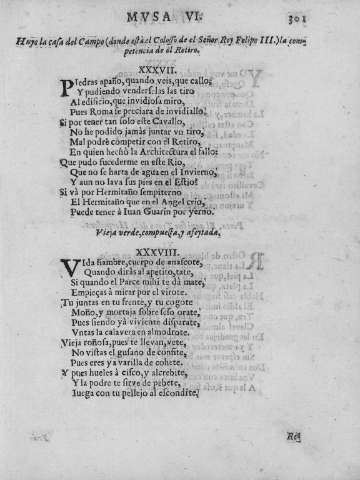 MVSA VI. 301
Huye la casa del Campo (donde està el Coloso de el Señor Rey Felipo III.) la com-
petencia de el Retiro.
XXXVII.
PIedras apaño, quando veis, que callo;
Y pudiendo venderselas las tiro
Al edificio, que invidiosa miro,
Pues Roma se preciara de invidiallo;
Si por tener tan solo este Cavallo,
No he podido jamàs juntar vn tiro,
Mal podrè competir con el Retiro,
En quien hechò la Architectura el fallo;
Que pudo sucederme en este Rio,
Que no se harta de agua en el Invierno,
Y aun no lava sus pies en el Estio!
Si và por Hermitaño sempiterno
El Hermitaño que en el Angel crio,
Puede tener à Iuan Guarin por yerno.
Vieja verde, compuesta, y afeytada.
XXXVIII.
VIda fiambre, cuerpo de anascote,
Quando diràs al apetito, tate,
Si quando el Parce mihi te dà mate,
Empieças à mirar por el virote.
Tu juntas en tu frente, y tu cogote
Moño, y mortaja sobre seso orate,
Pues siendo yà viviente disparate,
Vntas la calavera en almodrote.
Vieja roñosa, pues te llevan, vete,
No vistas el gusano de confite,
Pues eres ya varilla de cohete.
Y pues hueles à cisco, y alcrebite,
Y la podre te sirve de pebete,
Iuega con tu pellejo al escondite.